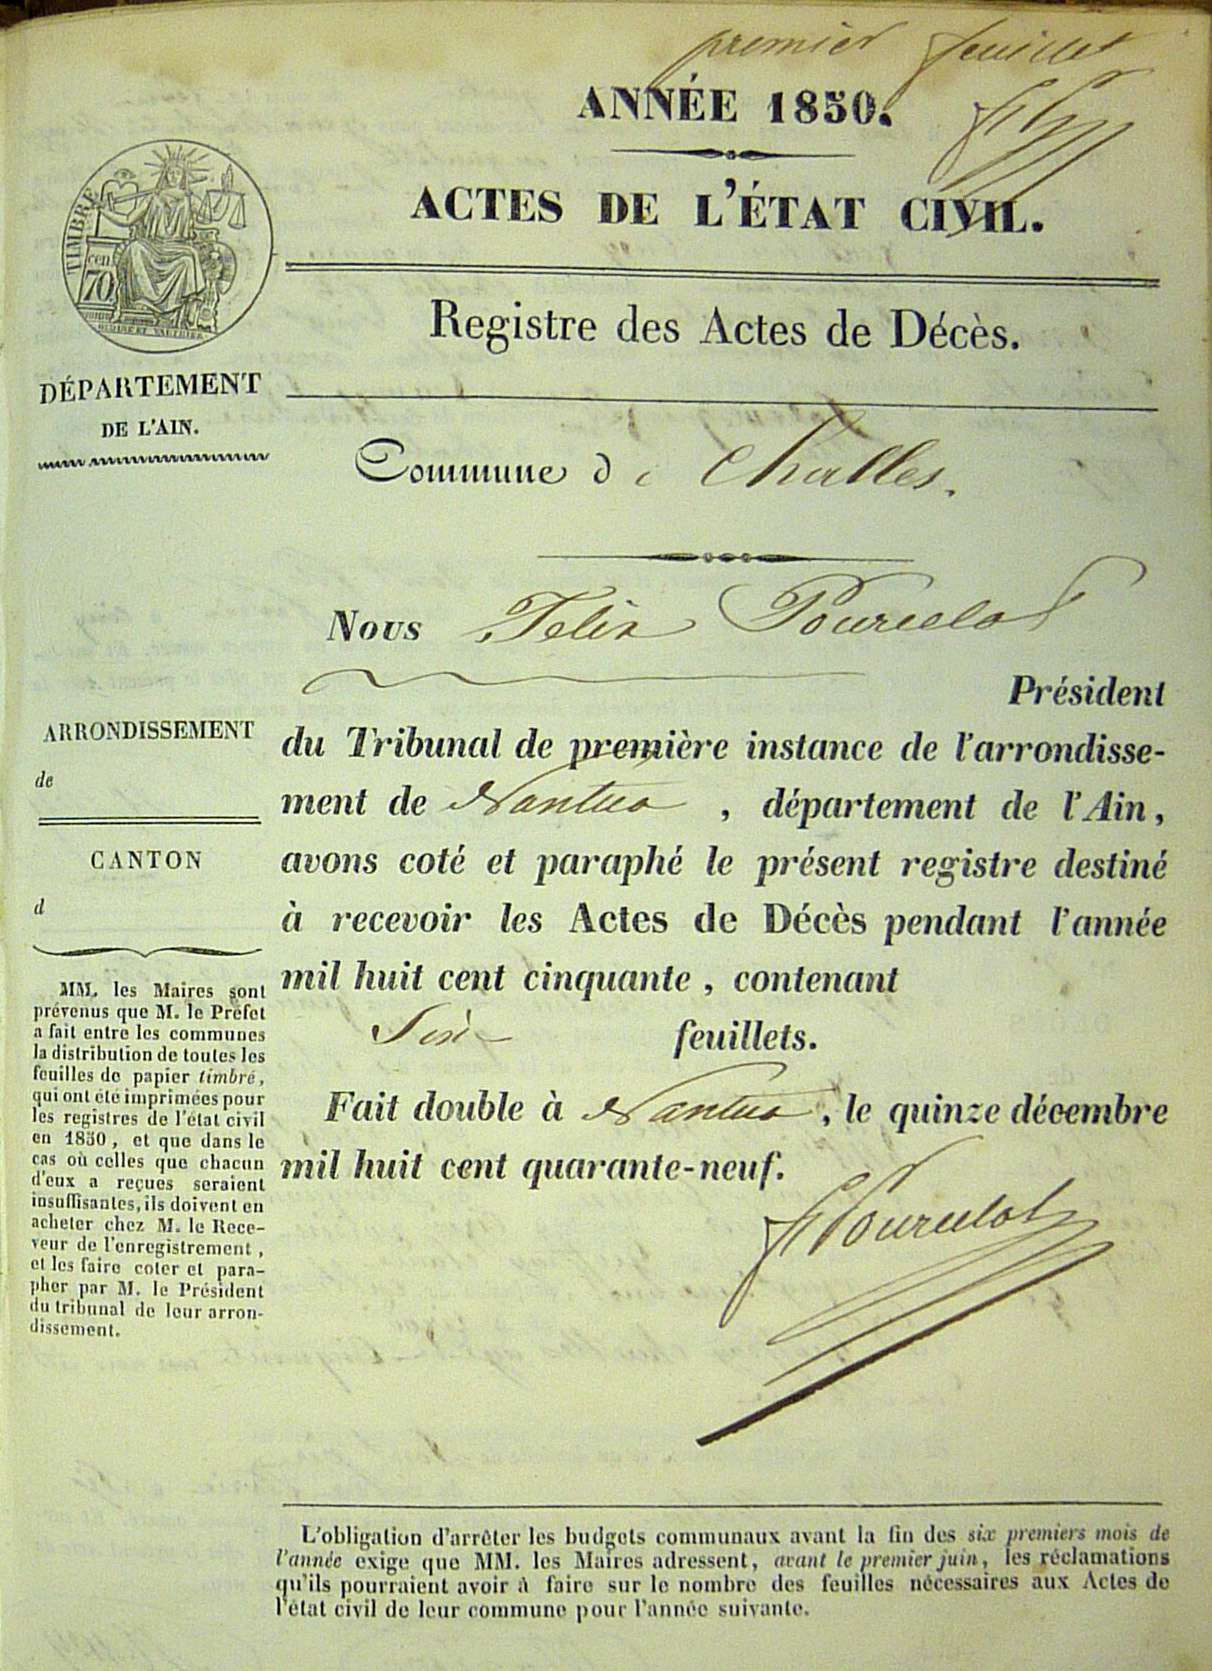 premier feuillet
ANNÉE 1850.
ACTES DE L'ÉTAT CIVIL.
TIMBRE
cen
70
Registre des Actes de Décès.
DÉPARTEMENT
DE L'AIN.
Commune de Challes.
Nous Felix Pourcelot
Président
du Tribunal de première instance de l'arrondisse-
ment de Nantua, département de l'Ain,
avons coté et paraphé le présent registre destiné
à recevoir les Actes de Décès pendant l'année
mil huit cent cinquante, contenant
Six feuillets.
Fait double à Nantua, le quinze décembre
mil huit cent quarante-neuf.
FPourcelot
ARRONDISSEMENT
de
CANTON
d
MM. les Maires sont
prévenus que M. le Préfet
a fait entre les communes
la distribution de toutes les
feuilles de papier timbré,
qui ont été imprimées pour
les registres de l'état civil
en 1850, et que dans le
cas où celles que chacun
d'eux a reçues seraient
insuffisantes, ils doivent en
acheter chez M. le Rece-
veur de l'enregistrement,
et les faire coter et para-
pher par M. le Président
du tribunal de leur arron-
dissement.
L'obligation d'arrêter les budgets communaux avant la fin des six premiers mois de
l'année exige que MM. les Maires adressent, avant le premier juin, les réclamations
qu'ils pourraient avoir à faire sur le nombre des feuilles nécessaires aux Actes de
l'état civil de leur commune pour l'année suivante.